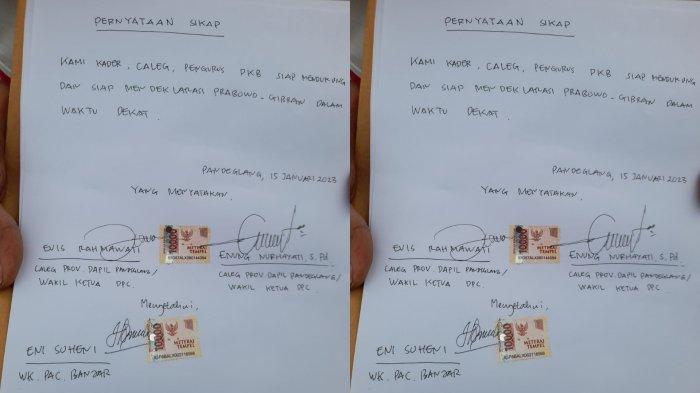 PERNYATAAN SIKAP
KAMI KADER, CALEG, PENGURUS PKB SIAP MENDUKUNG
DAN SIAP MENDEKLARASI PRABOWO-GIBRAN DALAM
WAKTU DEKAT.
PANDEGLANG, 15 JANUARI 2023
YANG MENYATAKAN.
10000
METERAI
TEMPEL
ENIS RAHMAWATI
ENUNG NURHAYATI, S.Pd
CALEG PROV. DAPIL PANDEGLANG/
WAKIL KETUA DPC.
CALEG PROV. DAPIL PANDEGLANG/
WAKIL KETUA DPC.
Mengetahui,
10000
METERAI
TEMPEL
ENI SUHENI
WK. PAC. BANJAR
PERNYATAAN SIKAP
KAMI KADER, CALEG, PENGURUS PKB SIAP MENDUKUNG
DAN SIAP MENDEKLARASI PRABOWO-GIBRAN DALAM
WAKTU DEKAT.
PANDEGLANG, 15 JANUARI 2023
YANG MENYATAKAN.
10000
METERAI
TEMPEL
ENIS RAHMAWATI
ENUNG NURHAYATI, S.Pd
CALEG PROV. DAPIL PANDEGLANG/
WAKIL KETUA DPC.
CALEG PROV. DAPIL PANDEGLANG/
WAKIL KETUA DPC.
Mengetahui,
10000
METERAI
TEMPEL
ENI SUHENI
WK. PAC. BANJAR